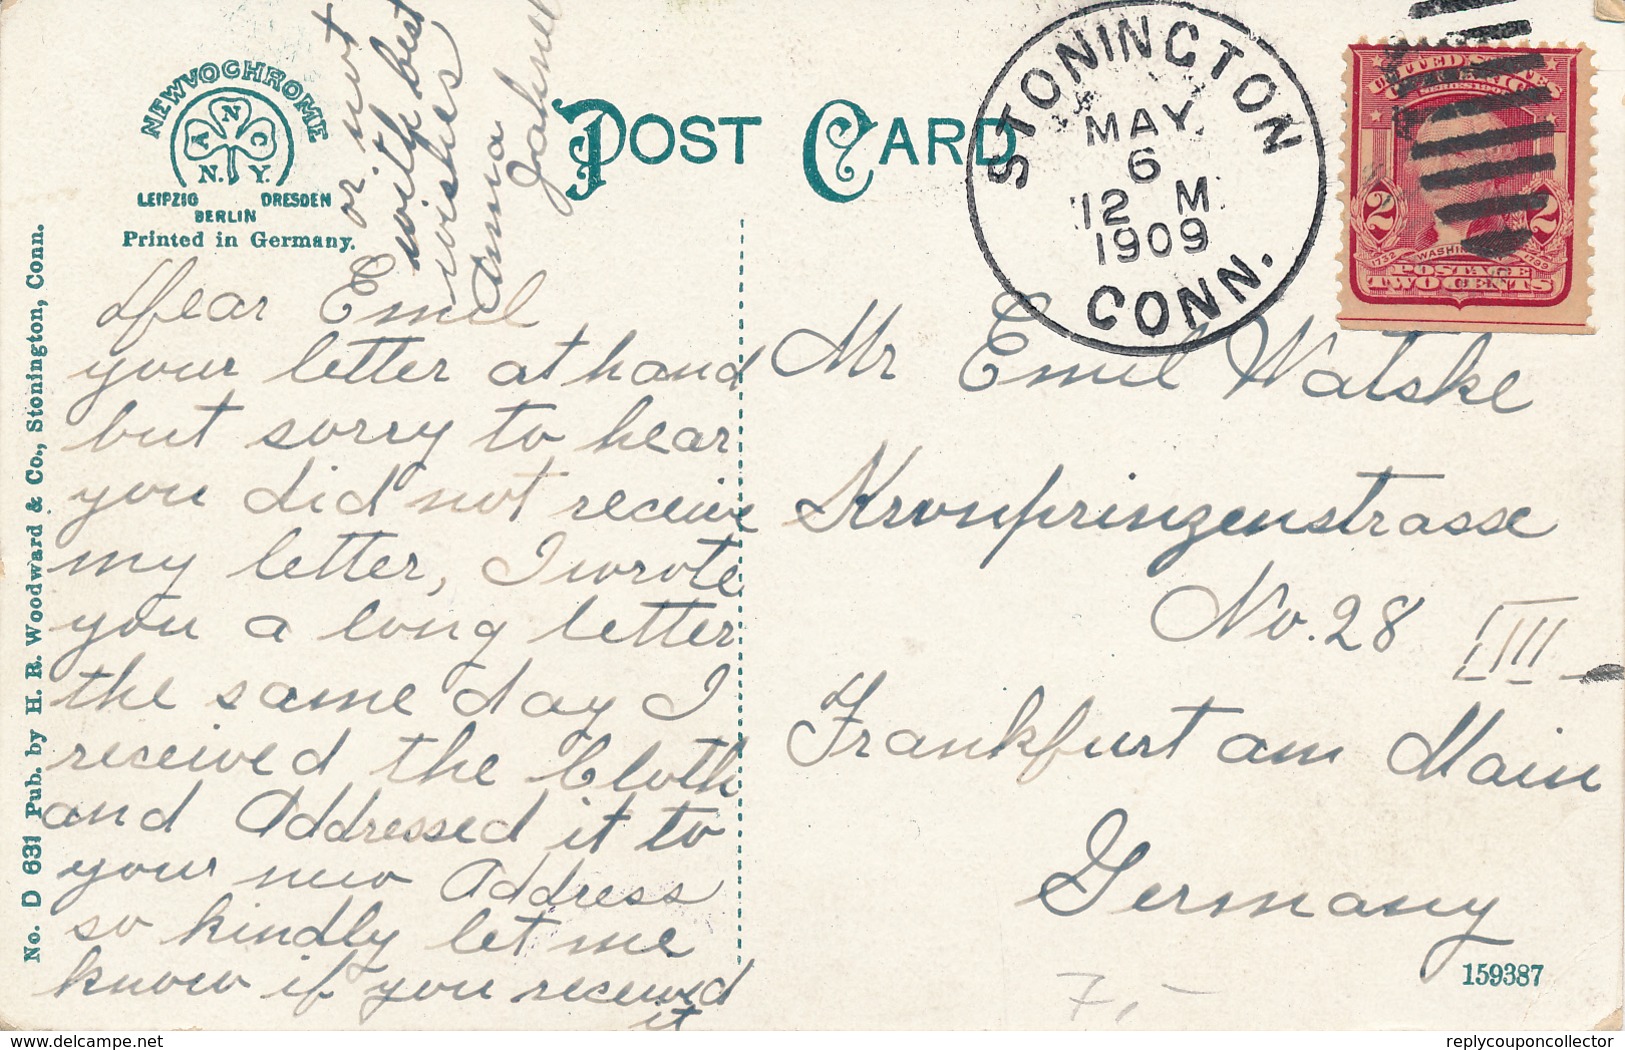 NEWVOCHROME
A N C Y
N. Y.
LEIPZIG DRESDEN
BERLIN
Printed in Germany.
POST CARD
STONINGTON
MAY
6
12 M
1909
CONN.
UNITED STATES
SERIES 1902
2 2
1732 WASHINGTON 1799
POSTAGE
TWO CENTS
No. D 631 Pub. by H. R. Woodward & Co., Stonington, Conn.
Dear Emil
your letter at hand
but sorry to hear
you did not receive
my letter, I wrote
you a long letter
the same day I
received the Cloth
and Addressed it to
your new Address
so kindly let me
know if you received
it
or not
with best
wishes
Anna
Mr Emil Watske
Kronprinzenstrasse
No. 28 III
Frankfurt am Main
Germany
159387
7,-
delcampe.net
replycouponcollector